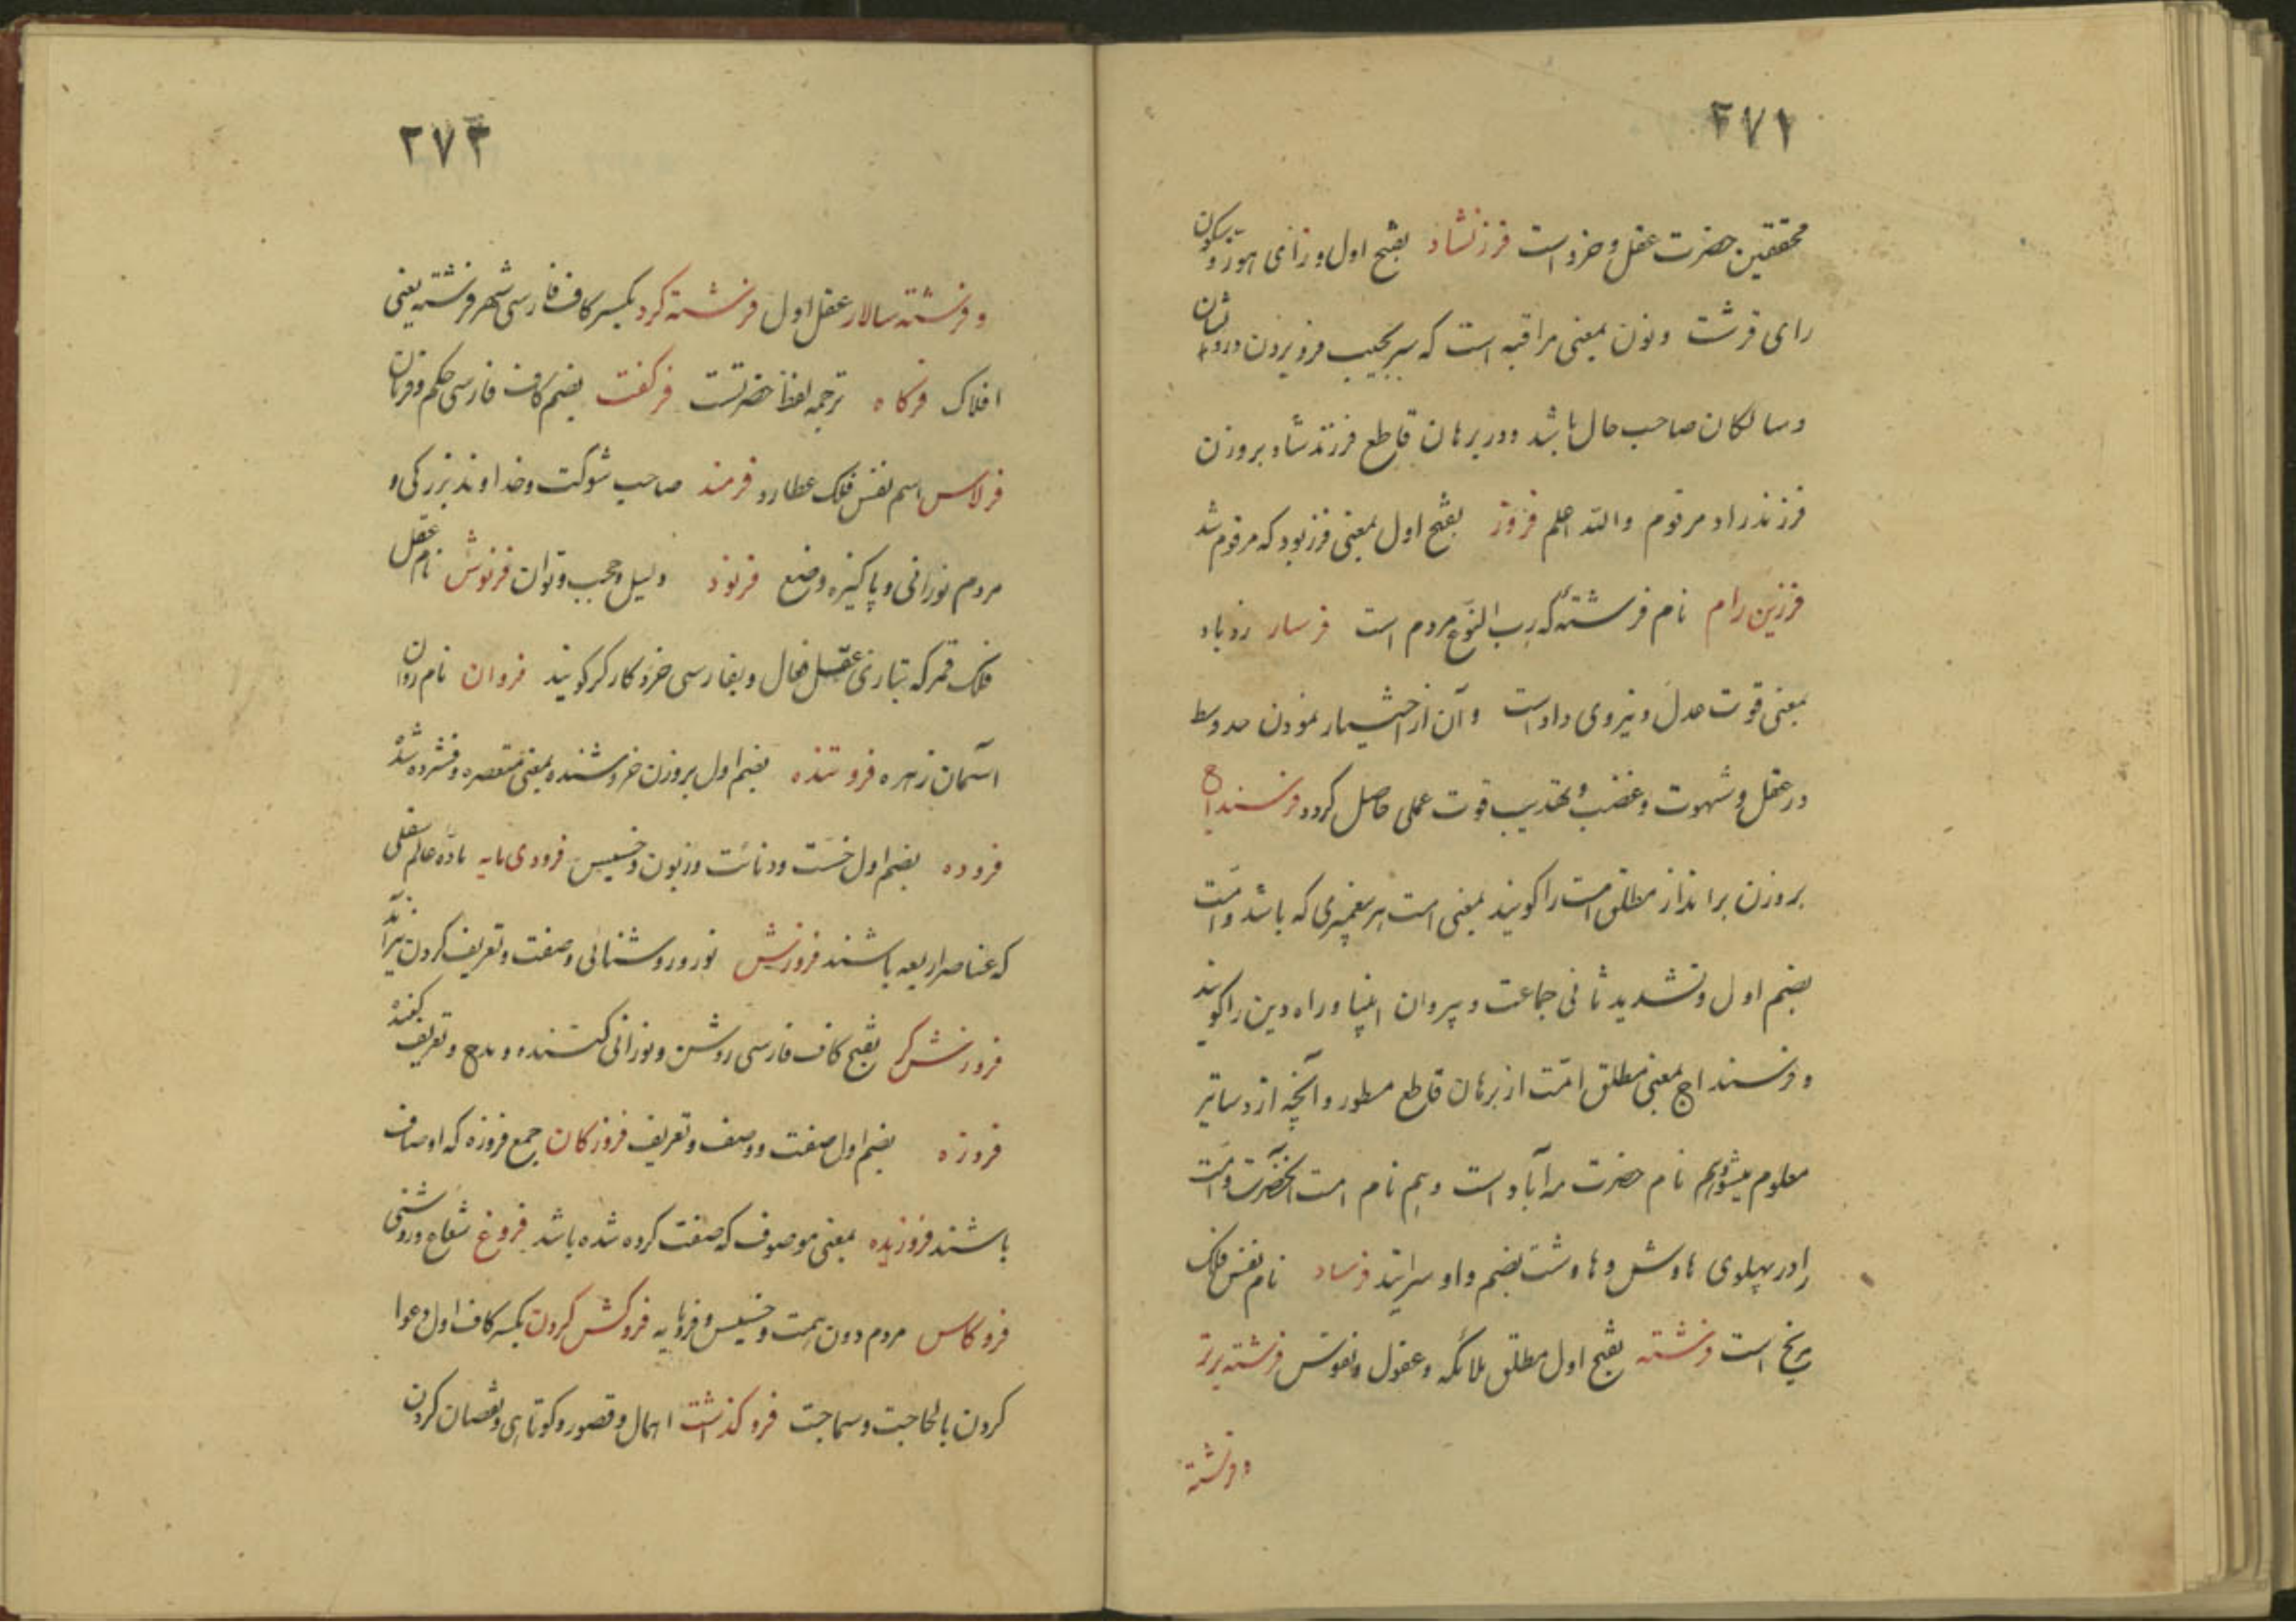 ۲۷۱
محققین حضرت عقل و خرد است فرزنشاد بفتح اول و زای هوز و سکون
رای قرشت و نون بمعنی مراقبه است که سر بجیب فرو بردن درویشان
و سالکان صاحب حال باشد و در برهان قاطع فرزندشاد بروزن
فرزندزاد مرقوم والله اعلم فروز بفتح اول بمعنی فرزبود که مرقوم شد
فرزین رام نام فرشته که رب النوع مردم است فرسار زد باد
بمعنی قوت عدل و نیروی داد است و آن از اختیار نمودن حد وسط
در عقل و شهوت و غضب و تهذیب قوت عملی حاصل کردد فرسنداج
بروزن برانداز مطلق امت را کویند یعنی امت هر پیغمبری که باشد و امت
بضم اول و تشدید ثانی جماعت و پیروان انبیا و راه دین را کویند
و فرسنداج بمعنی مطلق امت از برهان قاطع مسطور و آنچه از دساتیر
معلوم میشود هم نام حضرت مه آباد است و هم نام امت آنحضرت و امت
را در پهلوی هاوش و هاوشت بضم واو سرایند فرساد نام نفس فلک
مریخ است فرشته بفتح اول مطلق ملائکه و عقول و نفوس فرشته برتر
و فرشته
۲۷۳
و فرشته سالار عقل اول فرشته کرد بکسر کاف فارسی شهر فرشته یعنی
افلاک فرکاه ترجمه لفظ حضرتست فرکفت بضم کاف فارسی حکم و فرمان
فرلاس اسم نفس فلک عطارد فرمند صاحب شوکت و خداوند بزرکی و
مردم نورانی و پاکیزه وضع فرنود دلیل و حجب و توان فرنوش نام عقل
فلک قمر که بتازی عقل فعال و بفارسی خرد کارکر کویند فروان نام روان
آسمان زهره فروتنده بضم اول بروزن خروشنده بمعنی منتصره و فشرده شده
فروده بضم اول خست و دنائت و زبون و خسیس فرودی مایه ماده عالم سفلی
که عناصر اربعه باشند فروزش نور و روشنائی و صفت و تعریف کردن نیز آمد
فروزش کر بفتح کاف فارسی روشن و نورانی کننده و مدح و تعریف کننده
فروزه بضم اول صفت و وصف و تعریف فروزکان جمع فروزه که اوصاف
باشند فروزیده بمعنی موصوف که صفت کرده شده باشد فروغ شعاع و روشنی
فروکاس مردم دون همت و خسیس و فرومایه فروکش کردن بکسر کاف اول دعوا
کردن بالحاجت و سماجت فروکذاشت اهمال و قصور و کوتاهی و نقصان کردن